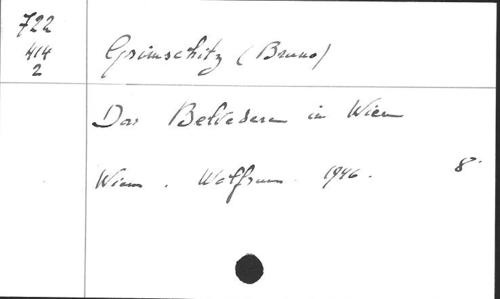 722
414
2
Grimschitz (Bruno)
Das Belvedere in Wien
Wien. Wolfrum. 1946. 8°